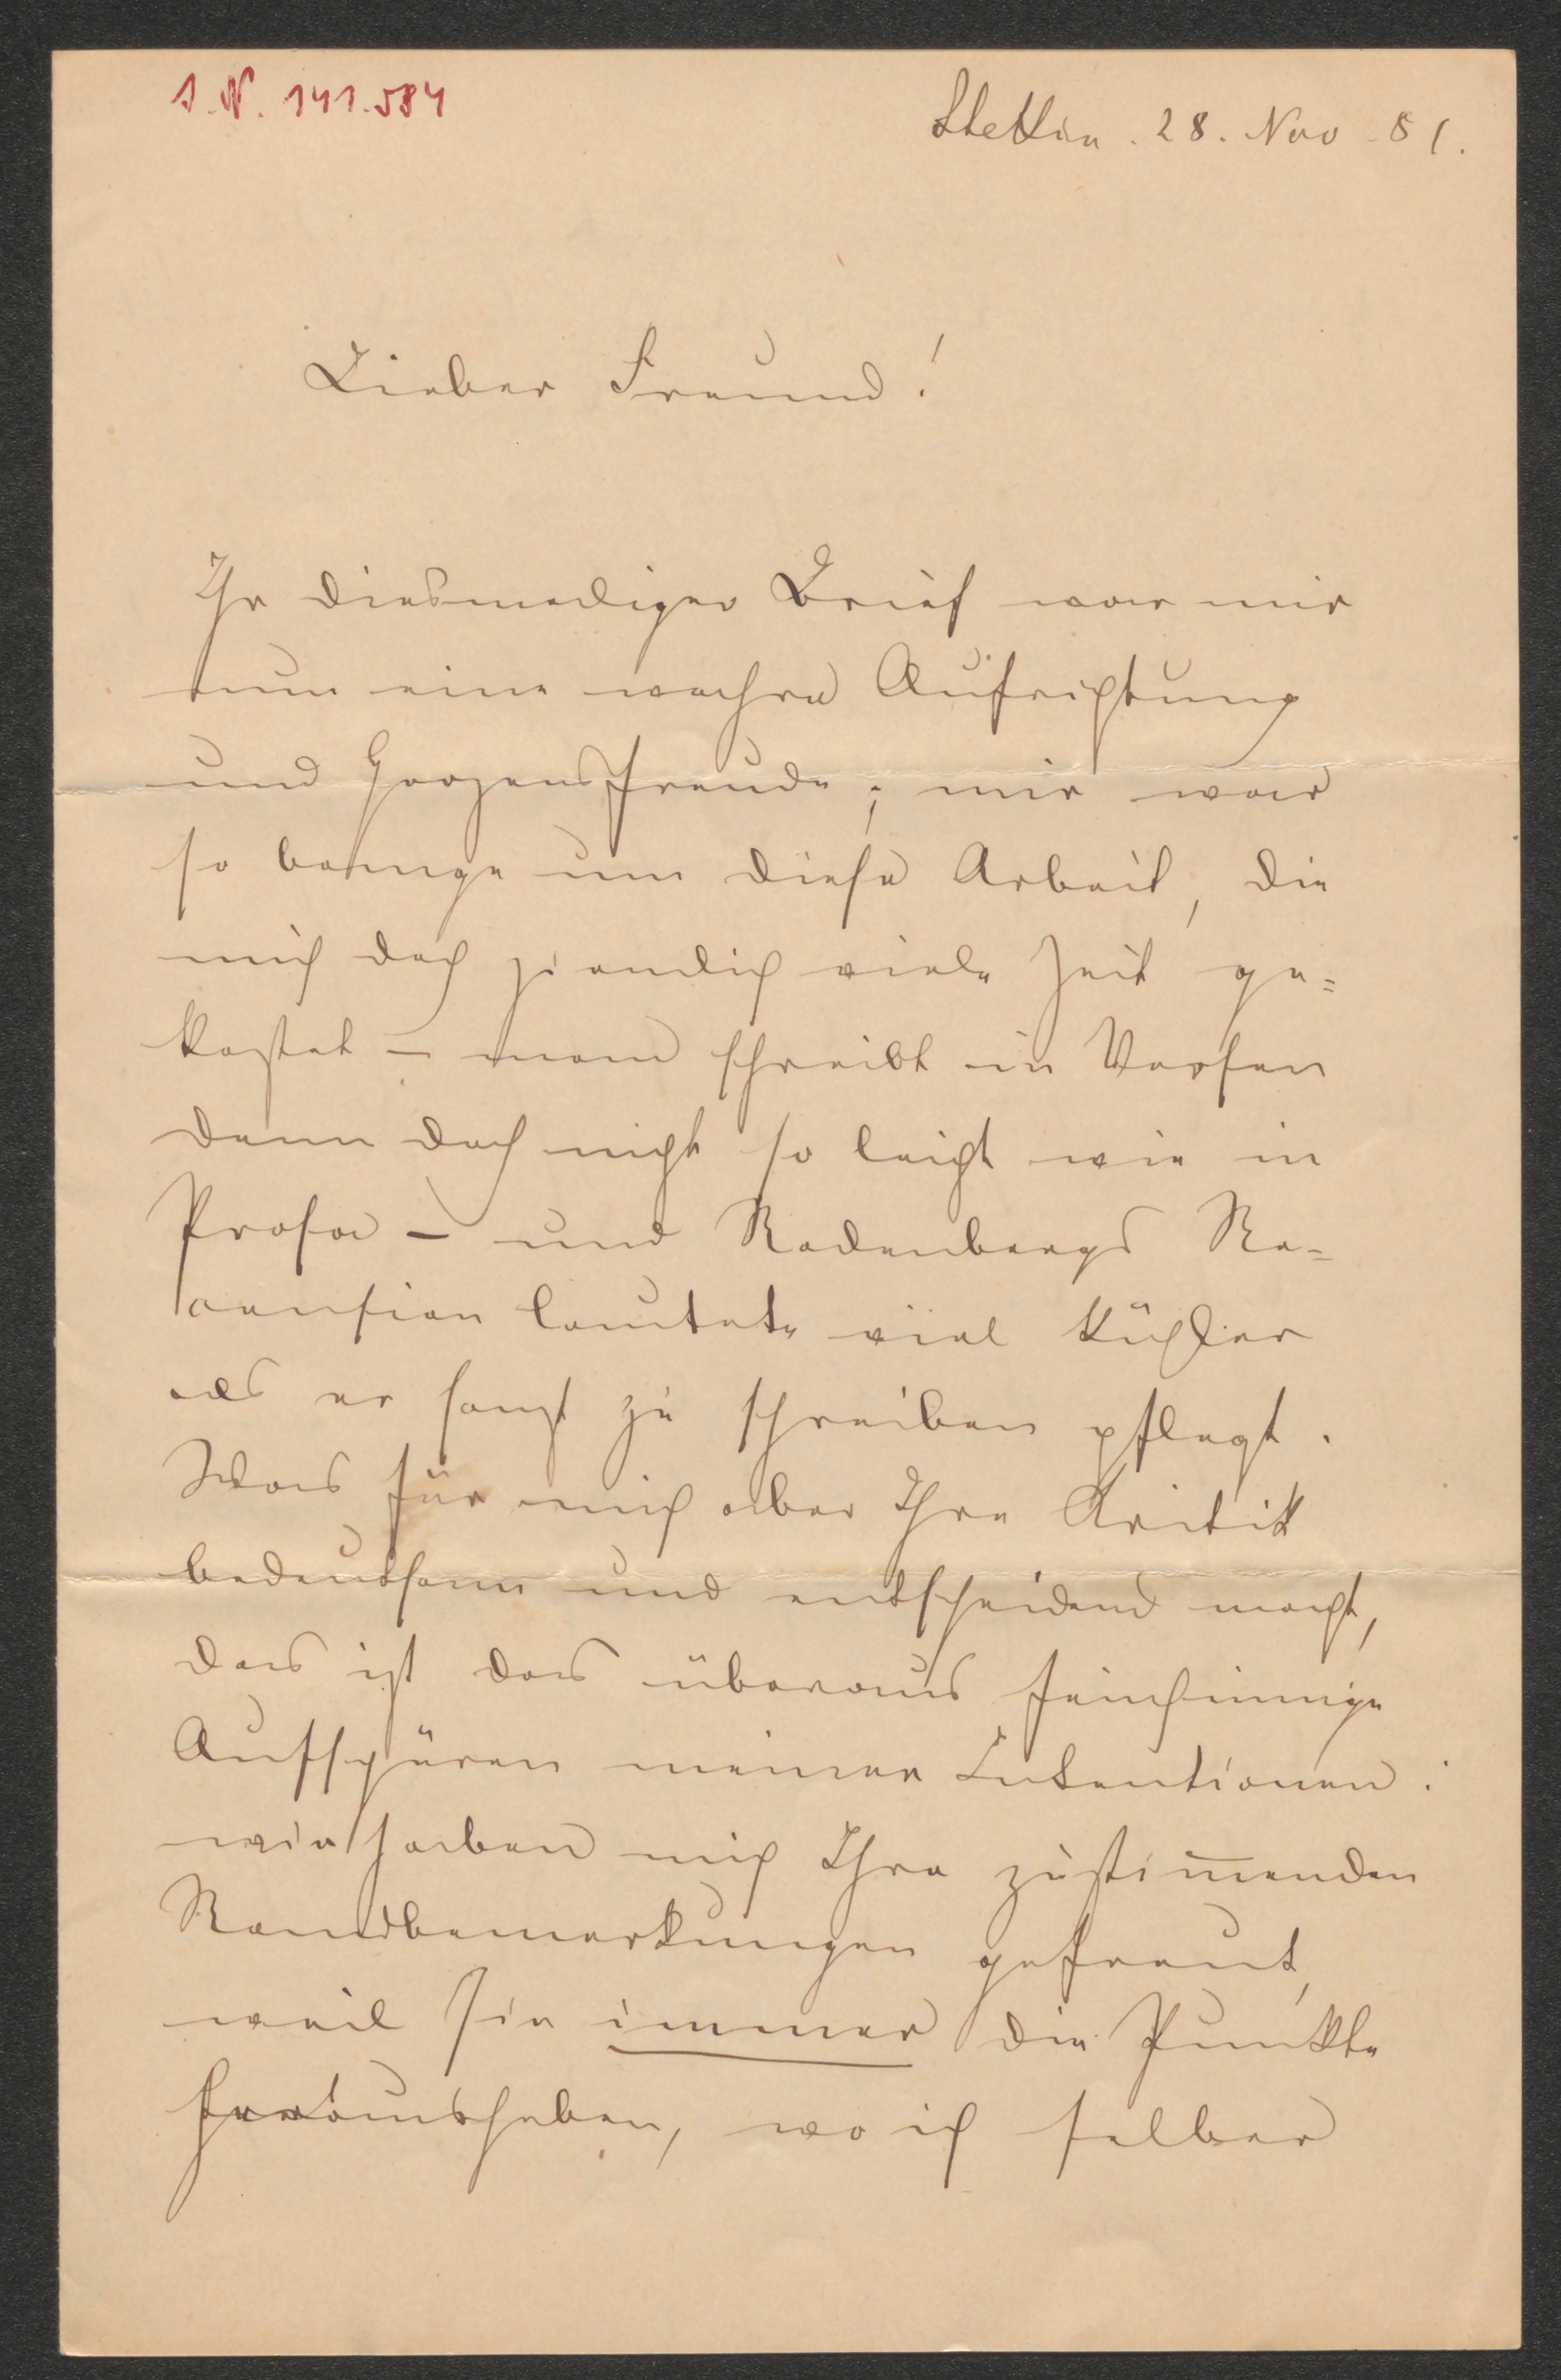 I.N. 141.584
Stettin. 28. Nov. 81.
Lieber Freund!
Ihr diesmaliger Brief war mir
nun eine wahre Aufrichtung
und Herzensfreude; mir war
so bange um diese Arbeit, die
mich doch ziemlich viele Zeit ge=
kostet – man schreibt in Versen
denn doch nicht so leicht wie in
Prosa – und Rodenbergs Re=
cension lautete viel kühler
als er sonst zu schreiben pflegt.
Was für mich aber Ihre Kritik
bedeutsam und entscheidend macht,
das ist das überaus feinsinnige
Aufspüren meiner Intentionen:
wie haben mich Ihre zustim̅enden
Randbemerkungen gefreut,
weil sie immer die Punkte
heraushaben, wo ich selber